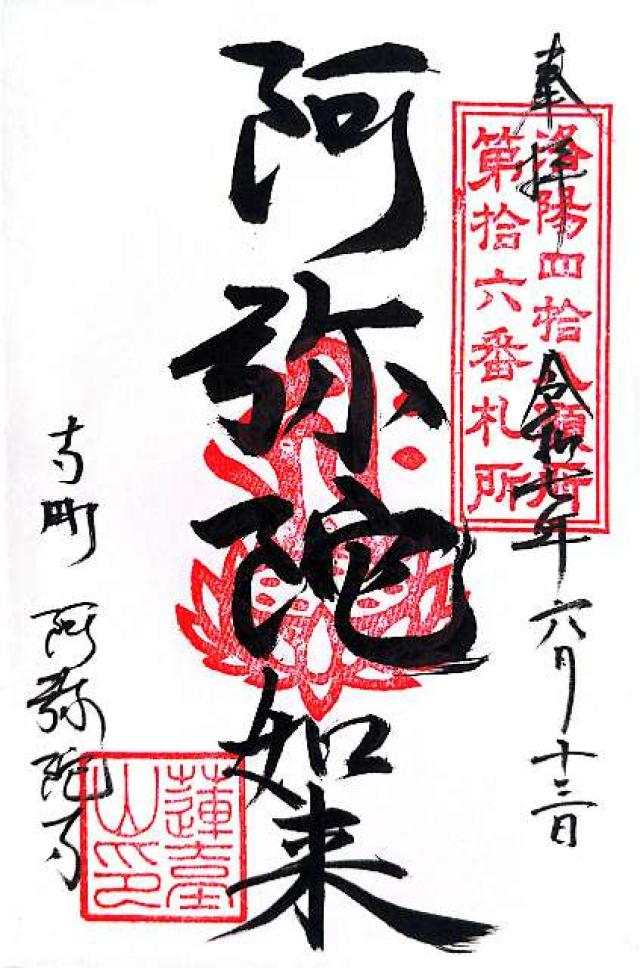 奉拝
令和七年六月十三日
洛陽四拾八願所
第拾六番札所
阿弥陀如来
寺町 阿弥陀寺
蓮臺山印